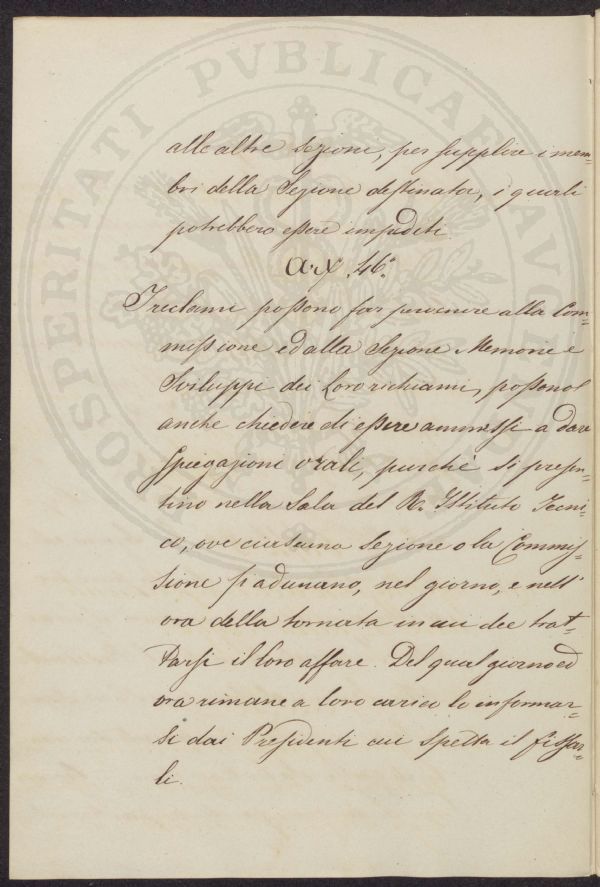 PROSPERITATI PVBLICAE AVGENDAE
alle altre Sezioni, per supplire i mem=
bri della Sezione destinata, i quali
potrebbero essere impediti.
Art. 46°.
I reclami possono far pervenire alla Com=
missione ed alla Sezione Memorie e
Sviluppi dei loro richiami, possono
anche chiedere di essere ammessi a dare
spiegazioni orali, purchè si presen=
tino nella Sala del R. Istituto Tecni=
co, ove ciascuna Sezione o la Commis=
sione s'adunano, nel giorno, e nell'
ora della tornata in cui dee trat=
tarsi il loro affare. Del qual giorno ed
ora rimane a loro carico lo informar=
si dai Presidenti cui spetta il fissar=
li.